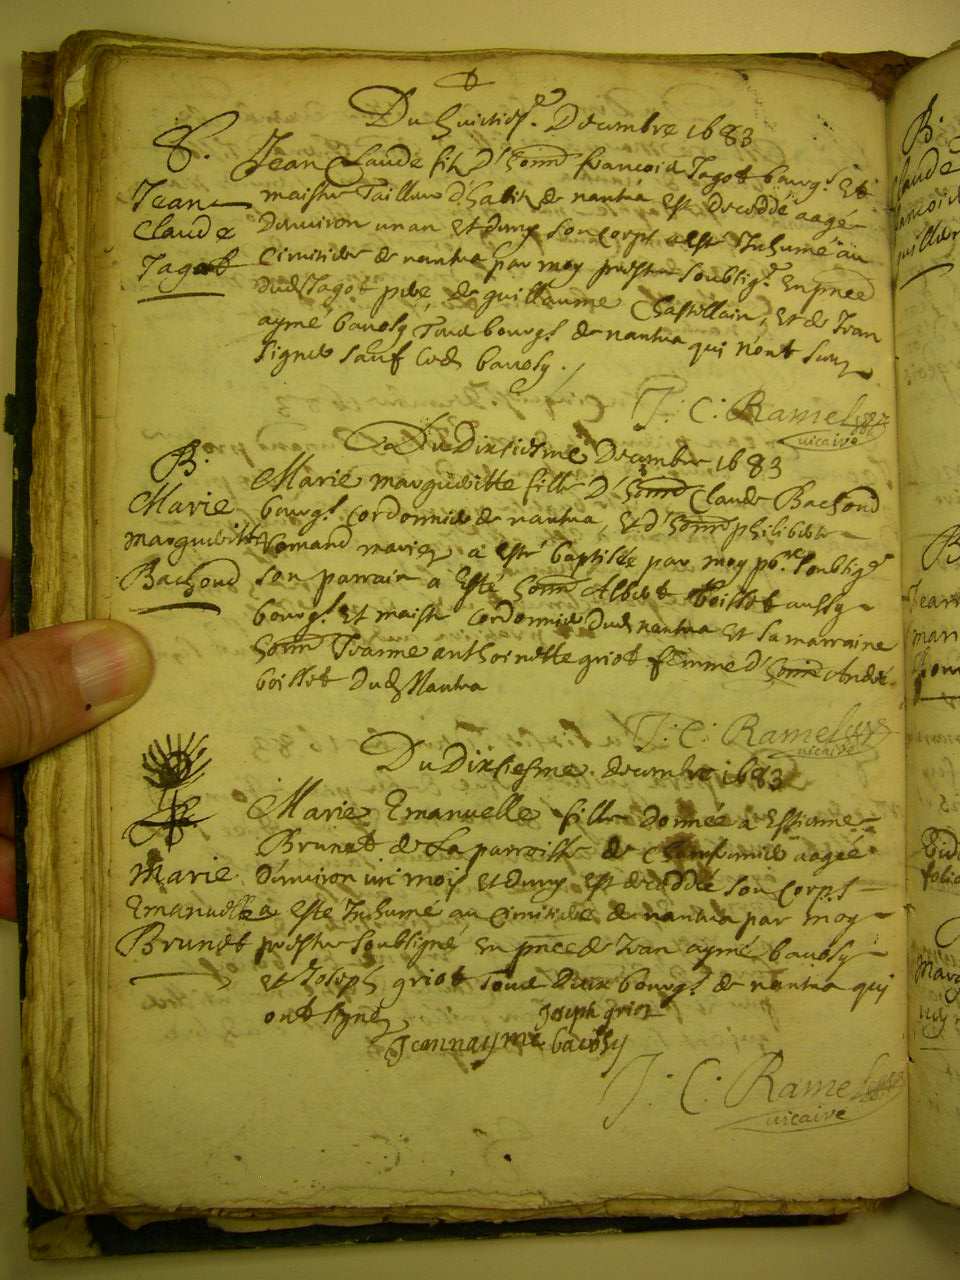 Du huictie. Decembre 1683
S.
Jean Claude fils d' honn francois Jagot bourg. et
Jean
Claude
Jagot
maistre Tailleur d'habit de nantua est decedde aagé
d'environ un an et demy son corps a este Inhumé au
Cimitiere de nantua par moy prestre soubsig. en pnce
dud Jagot pere, de guillaume Chastellain, et de Jean
aymé bavosy Tous bourg. de nantua qui n'ont
signé sauf led bavosy.
J. C. Ramel
vicaire
Du Dixiesme Decembre 1683
B.
Marie
Margueritte
Bachoud
Marie margueritte fille d' honn Claude Bachoud
bourg. cordonnier de nantua, et d' honn philiberte
Romand mariez a esté baptisée par moy pb. soubsig
son parrain a esté honn Albert boillot aussy
bourg. et maistre cordonnier dud nantua et sa marraine
honn Jeanne anthoinette griot femme d' honn André
boillot dud Nantua
J. C. Ramel
vicaire
Du Dixiesme decembre 1683
Marie
Emanuelle
Brunet
Marie Emanuelle fille donnée a Estienne
Brunet de La parroisse de aagée
d'environ mois et demy est deceddé son corps
a este Inhumé au Cimitiere de nantua par moy
prestre soubsigné en pnce de Jean aymé bavosy
et Joseph griot Tous deux bourg. de nantua qui
ont signé
Joseph griot
Jean aymé bavosy
J. C. Ramel
vicaire
B.
Claude
francois